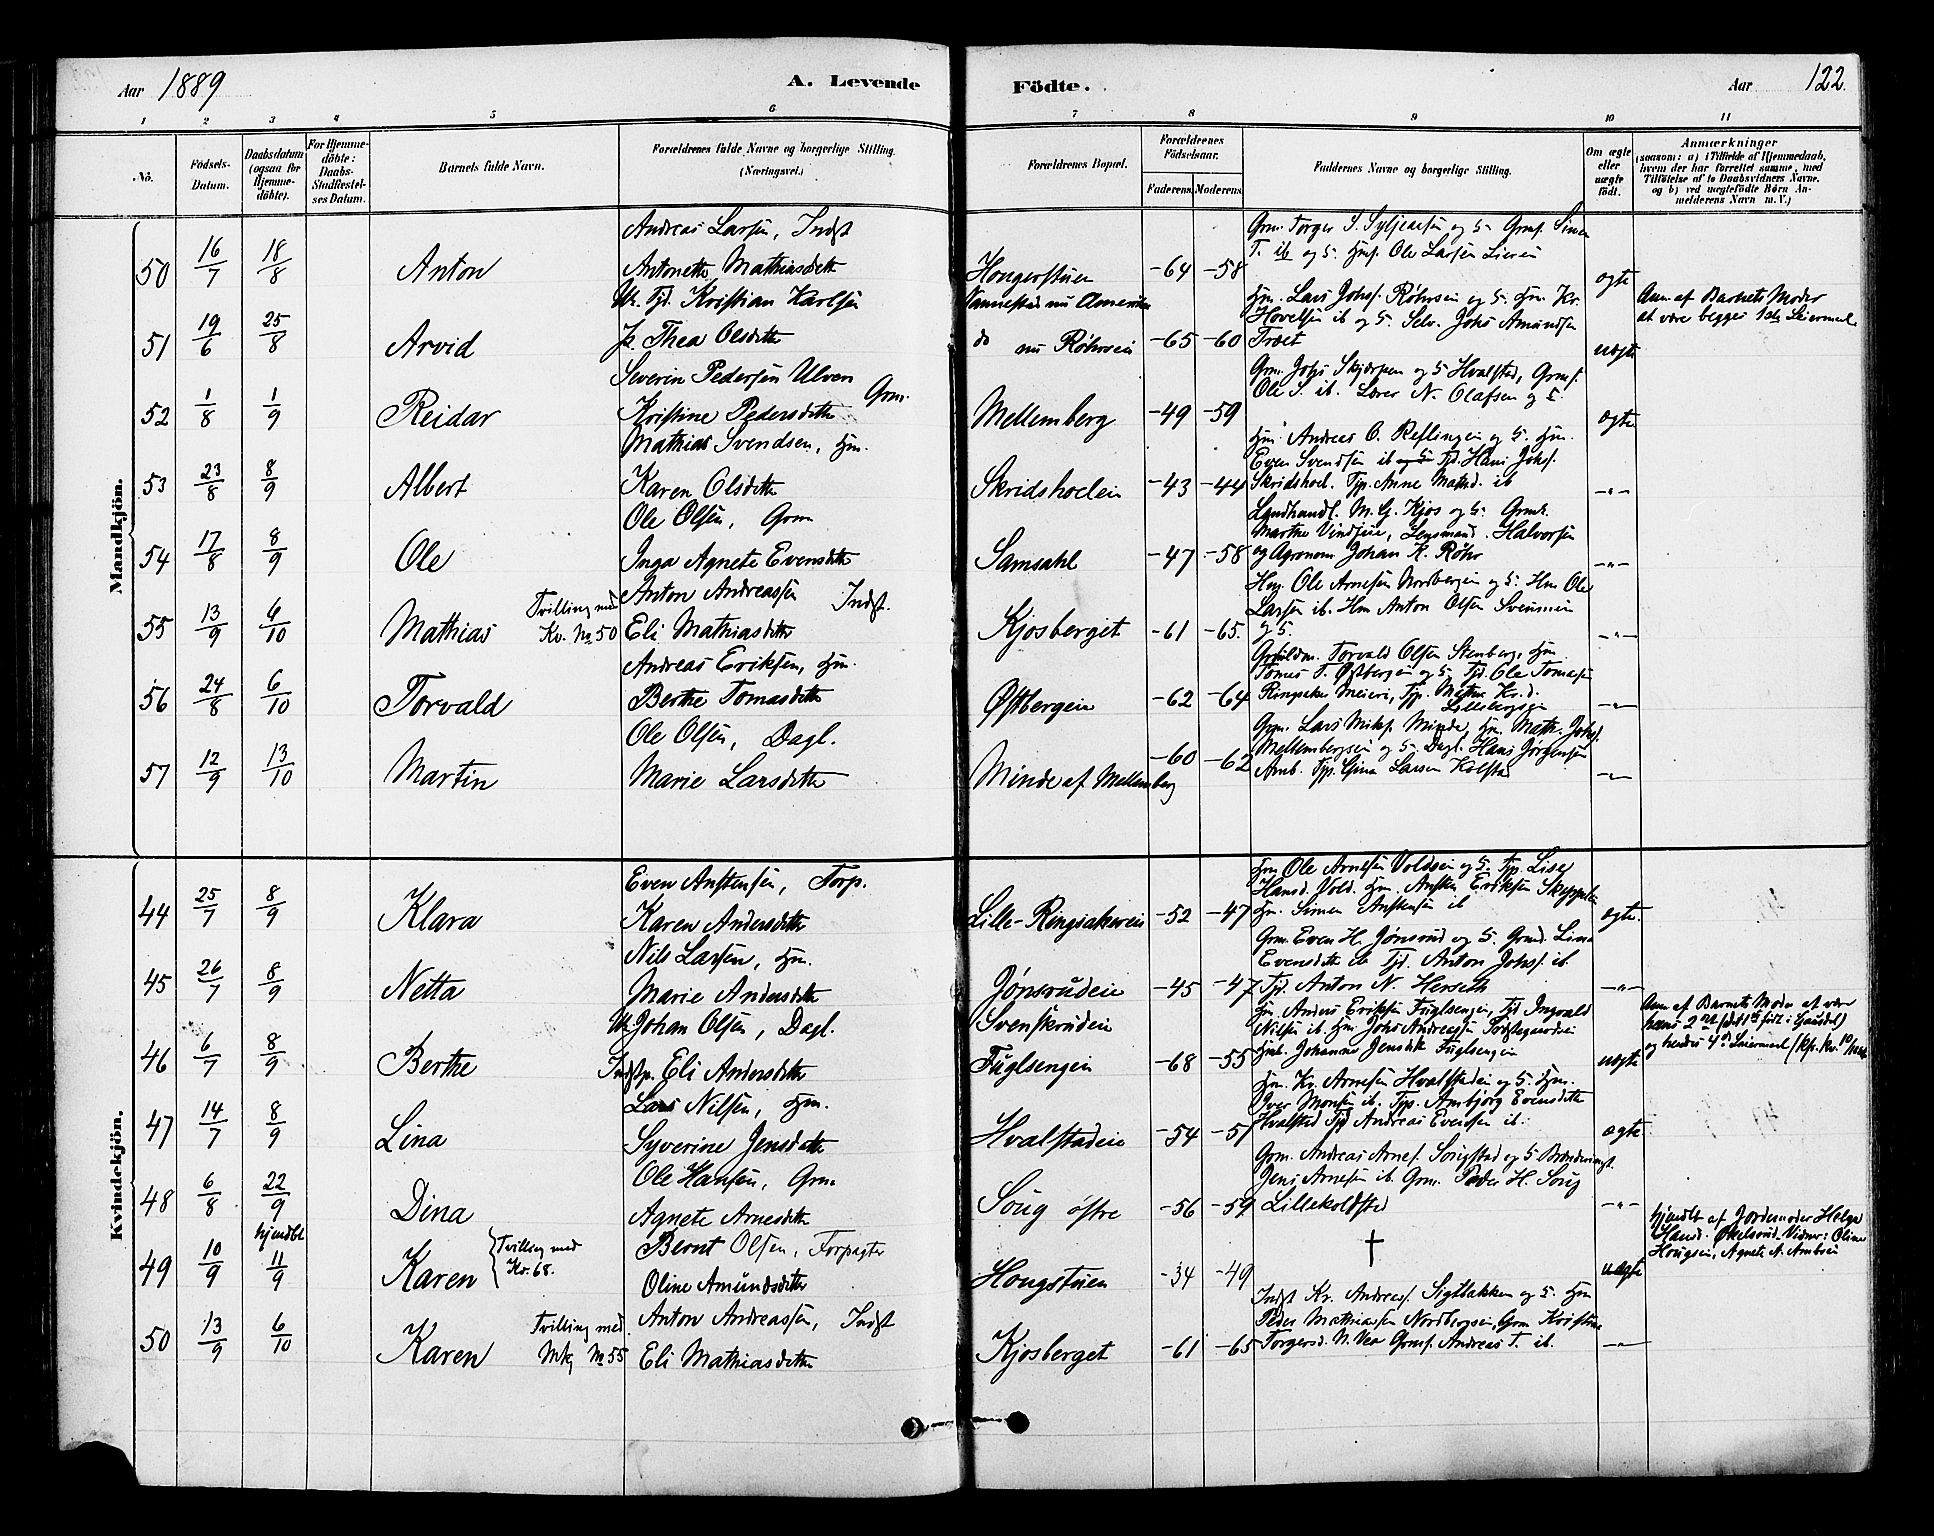 Aar 1889
A. Levende
Födte.
Aar 122.
1 2 3 4 5 6 7 8 9 10 11
No.
Födsels-Datum.
Daabsdatum (ogsaa for Hjemme-döbte).
For Hjemme-döbte: Daabs-Stadfæstel-ses Datum.
Barnets fulde Navn.
Forældrenes fulde Navne og borgerlige Stilling. (Næringsvei.)
Forældrenes Bopæl.
Forældrenes Födselsaar.
Faderens. Moderens.
Faddernes Navne og borgerlige Stilling.
Om ægte eller uægte födt.
Anmærkninger
(saasom: a) i Tilfælde af Hjemmedaab, hvem der har forrettet samme, med Tilföielse af to Daabsvidners Navne, og b) ved uægtefödte Börn An-melderens Navn m. V.)
Mandkjön.
50 16/7 18/8 Anton
Andreas Larsen, Indst
Antonette Mathiasdatter
Hougerstuen -64 -58
Grm. Torger S. Syljeaasen og 5. Grmf. Simen
T. ib og 5. Hmf. Ole Larsen Lieren
ægte
51 19/6 25/8 Arvid
Uk. Tjd. Kristian Karlsen
Pk. Thea Olsdatter
Vannestad nu Amerika
do nu Røhrsein -65 -60
Hm. Lars Johs. Røhrsein og 5. Hm. Kr.
Hovelsen ib og 5. Selv. Johs Amundsen
Træet
uægte
Anm af Barnets Moder
at være begges 1ste Leiermaal
52 1/8 1/9 Reidar
Severin Pedersen Ulven Grm.
Kristine Pedersdatter
Mellemberg -49 -59
Grm. Johs Skjærpen og 5 Hvalstad, Grmf.
Ole S. ib. Lærer N. Olafsen og 5.
ægte
53 23/8 8/9 Albert
Mathias Svendsen, Hm.
Karen Olsdatter
Skridsholein -43 -44
Hm. Andreas O. Reflingein og 5. Hm.
Even Svendsen ib og 5 Tjd. Hans Johs.
Skridshol. Tjp. Anne Mathsd. ib
-"-
54 17/8 8/9 Ole
Ole Olsen, Grm
Inga Agnete Evensdatter
Samsahl -47 -58
Landhandl. M. G. Kjos og 5. Grmk.
Marthe Vindjuie, Lensmand Halvorsen
og Agronom Johan K. Røhr
-"-
55 13/9 6/10 Mathias Tvilling med Kv. No 50
Anton Andreassen Indst.
Eli Mathiasdatter
Kjosberget -61 -65.
Hm. Ole Arnesen Nordbergein og 5. Hm Ole
Larsen ib. Hm Anton Olsen Sveumein
og 5.
-"-
56 24/8 6/10 Torvald
Andreas Eriksen, Hm.
Berthe Tomasdatter
Østbergein -62 -64
Torvald Olsen Stenberg, Hm.
Tomas T. Østbergein og 5. Tjd. Ole Tomasen
Ringsaker Meieri, Tjp. Mathea Kr.d.
Lillebergsein
-"-
57 12/9 13/10 Martin
Ole Olsen, Dagl.
Marie Larsdatter
Minde af Mellemberg -60 -62
Grm. Lars Miks. Minde, Hm. Math. Johs.
Mellembergsein og 5. Dagl. Hans Jørgensen
Amb. Tjp. Gina Larsen Kolstad
-"-
Kvindekjön.
44 25/7 8/9 Klara
Even Anstensen, Torp.
Karen Andersdatter
Lille-Ringsakerein -52 -47
Hm Ole Arnesen Voldsein og 5. Tjp. Lise
Hansd. Vold. Hm. Ansten Eriksen
Hm. Simen Anstensen ib
ægte.
45 26/7 8/9 Netta
Nils Larsen, Hm.
Marie Andersdatter
Jønsrudein -45 -47
Grm. Even H. Jønsrud og 5. Grmd. Lina
Evensdatter ib Tjd. Anton Johs. ib.
Tjd. Anton N. Herseth
-"-
46 6/7 8/9 Berthe
Uk. Johan Olsen, Dagl.
Indstp. Eli Andersdatter
Svenskrudein
Fuglsengein -68 -55
Hm. Anders Eriksen Fuglsengein, Tjd Ingvald
Nilsen ib. Hm. Johs Andreassen
Hmk. Johanne Jensdatter Fuglsengein
uægte
Anm af Barnets Moder at være
hans 2det (det 1ste født i Gausdal)
og hendes 4de Leiermaal
47 14/7 8/9 Lina
Lars Nilsen, Hm.
Syverine Jensdatter
Hvalstadein -54 -51
Hm. Kr. Arnesen Hvalstadein og 5. Hm.
Iver Monsen ib. Tjp. Ambjørg Evensdatter
Hvalstad Tjd Andreas Evensen ib.
ægte
48 6/8 22/9 Dina
Ole Hansen, Grm
Agnete Arnesdatter
Soug østre -56 -59
Grm. Andreas Arnes. Sougstad og 5
Jens Arnesen ib. Grm. Peder H. Soug
Lillekolstad
-"-
49 10/9 hjmdbt 11/9 Karen Tvilling med Kv. 68.
Bernt Olsen, Forpagter
Oline Amundsdatter
Hougstuen -34 -49
†
uægte
hjmdbt af Jordemoder Helge
Hansd. Økelsrud. Vidner: Oline
Hougsein, Agnete A. Ambsei
50 13/9 6/10 Karen Tvilling med Mk No 55
Anton Andreassen, Indst
Eli Mathiasdatter
Kjosberget -61 -65
Indst Kr. Andreass. Sigtbakken og 5. Hm
Peder Mathiassen Nordbergein, Grm Kristine
Torgersd. N. Vea Grmf. Andreas T. ib.
-"-